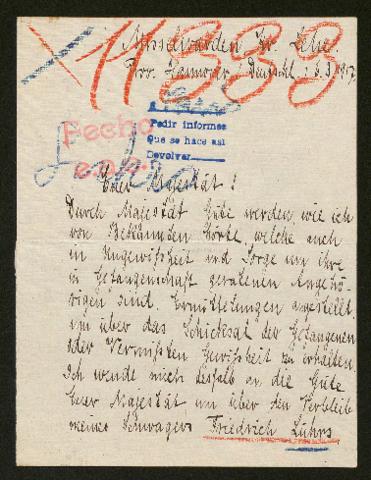 Misselwarden Kr. Lehe.
Prov. Hannover, Deutschl., 6.3.1917.
11833
Fecho
Pedir informes
Que se hace así
Devolver
Euer Majestät!
Durch Majestät Güte werden wie ich
von Bekannten hörte, welche auch
in Ungewißheit und Sorge um ihre
in Gefangenschaft geratenen Angehö-
rigen sind. Ermittelungen angestellt
um über das Schicksal der Gefangenen
oder Vermißten Gewißheit zu erhalten.
Ich wende mich desfalb an die Güte
Euer Majestät um über den Verbleib
meines Schwagers Friedrich Lührs